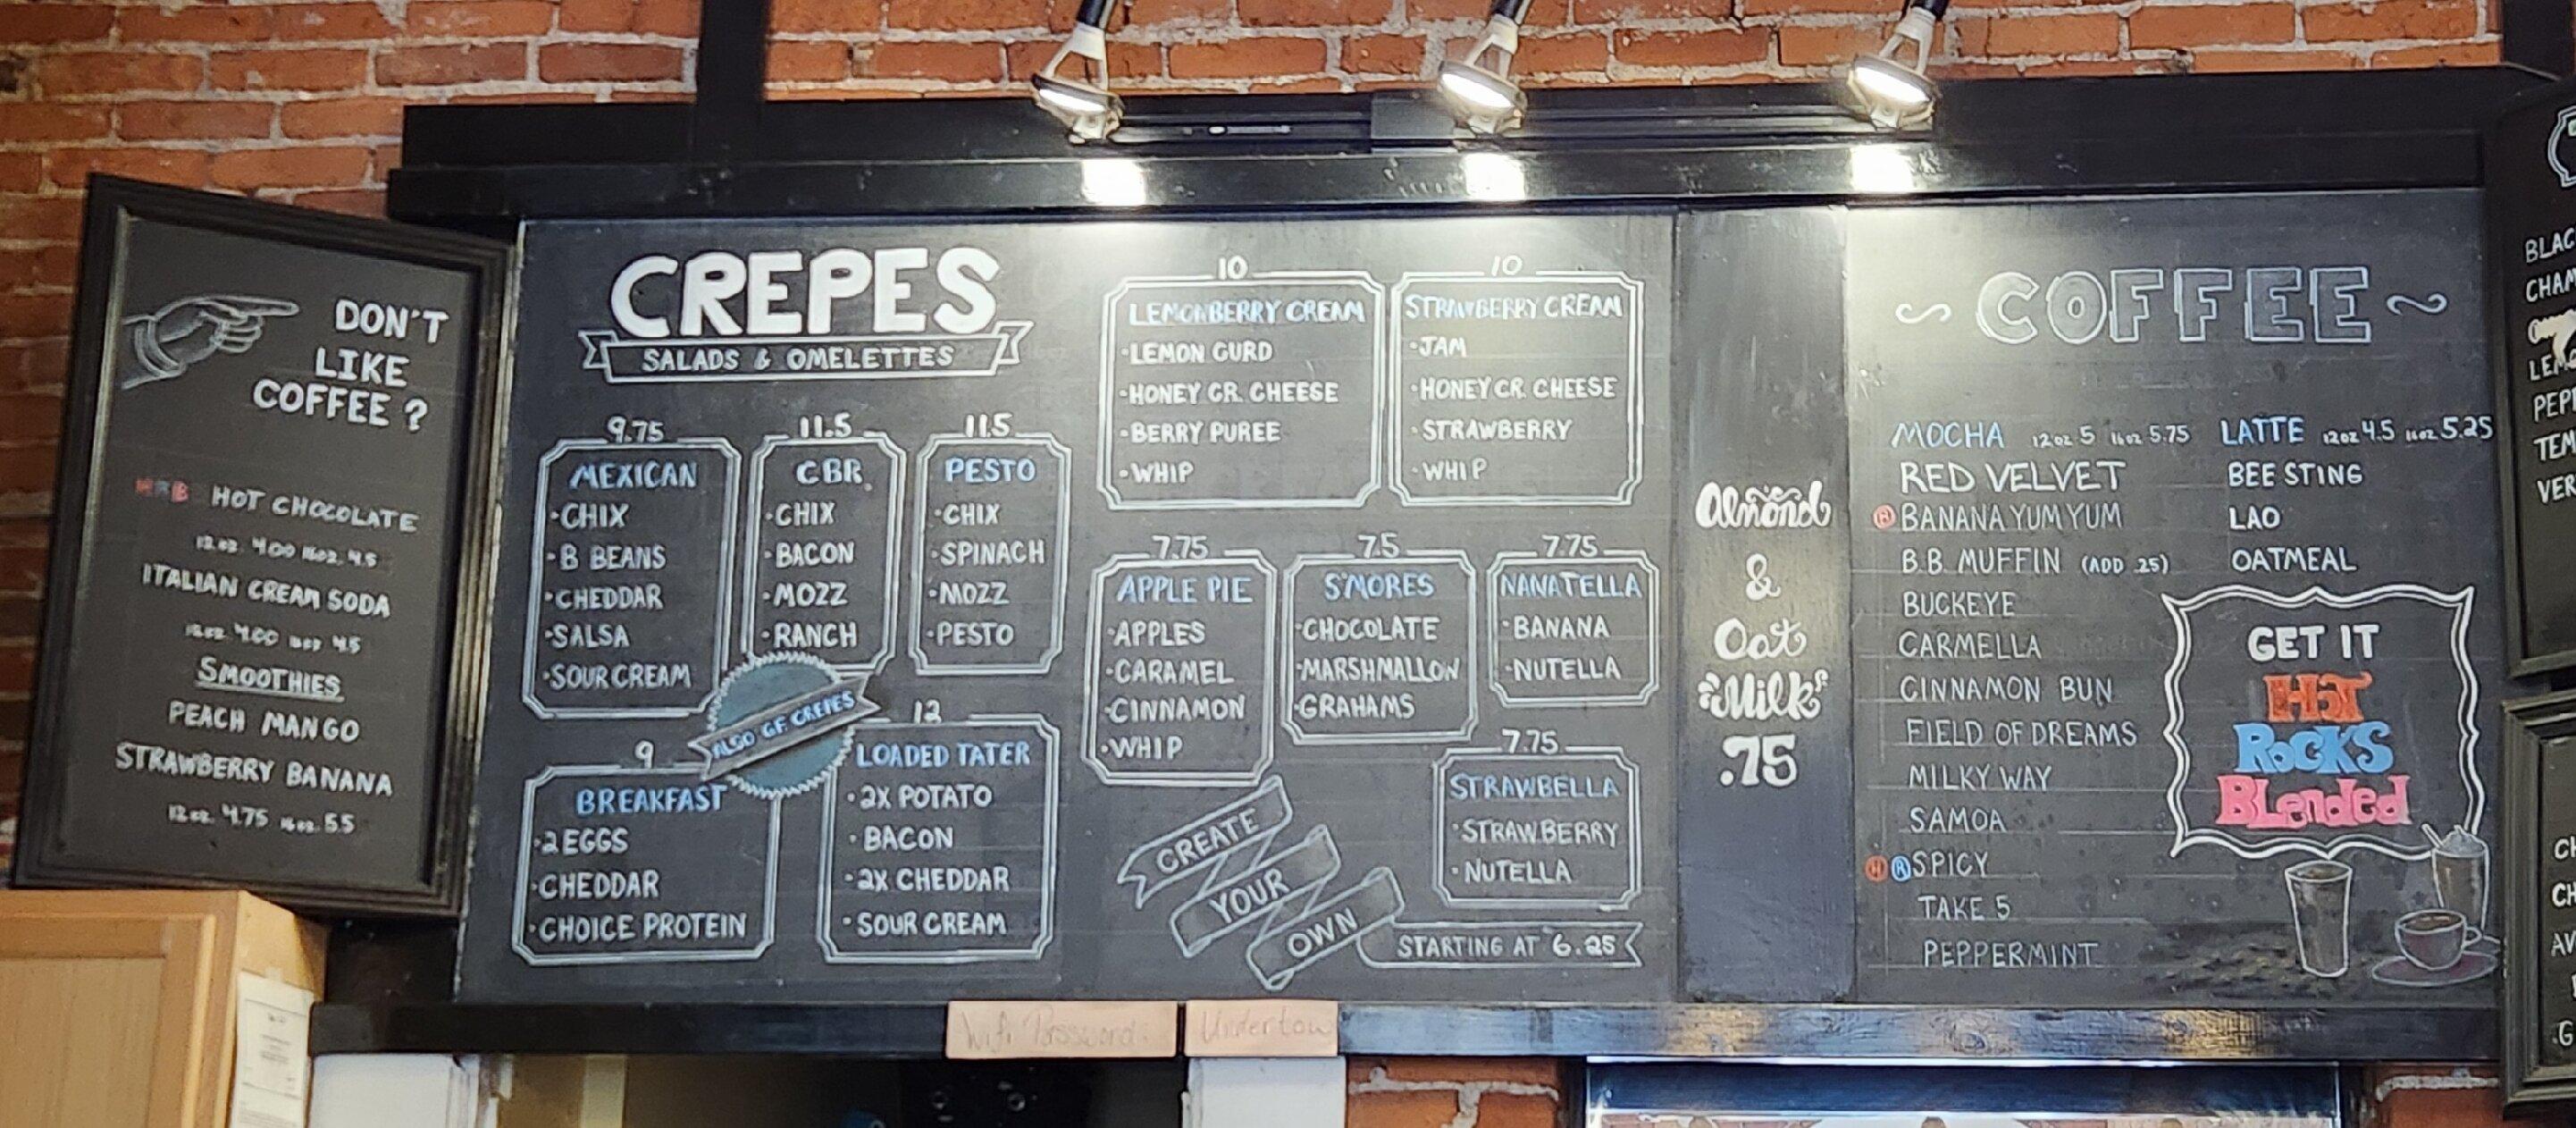 DON'T
LIKE
COFFEE?
HRB HOT CHOCOLATE
12oz. 4.00 16oz. 4.5
ITALIAN CREAM SODA
12oz 4.00 16oz 4.5
SMOOTHIES
PEACH MANGO
STRAWBERRY BANANA
12oz. 4.75 16oz. 5.5
CREPES
SALADS & OMELETTES
9.75
MEXICAN
·CHIX
·B BEANS
·CHEDDAR
·SALSA
·SOUR CREAM
11.5
CBR
·CHIX
·BACON
·MOZZ
·RANCH
11.5
PESTO
·CHIX
·SPINACH
·MOZZ
·PESTO
ALSO G.F. CREPES
9
BREAKFAST
·2 EGGS
·CHEDDAR
·CHOICE PROTEIN
12
LOADED TATER
·2X POTATO
·BACON
·2X CHEDDAR
·SOUR CREAM
10
LEMONBERRY CREAM
·LEMON CURD
·HONEY CR. CHEESE
·BERRY PUREE
·WHIP
10
STRAWBERRY CREAM
·JAM
·HONEY CR. CHEESE
·STRAWBERRY
·WHIP
7.75
APPLE PIE
·APPLES
·CARAMEL
·CINNAMON
·WHIP
7.5
S'MORES
·CHOCOLATE
·MARSHMALLOW
·GRAHAMS
7.75
NANATELLA
·BANANA
·NUTELLA
7.75
STRAWBELLA
·STRAWBERRY
·NUTELLA
CREATE
YOUR
OWN
STARTING AT 6.25
Almond
&
Oat
Milk
.75
~COFFEE~
MOCHA 12oz 5 16oz 5.75
RED VELVET
Ⓡ BANANA YUM YUM
B.B. MUFFIN (ADD .25)
BUCKEYE
CARMELLA
CINNAMON BUN
FIELD OF DREAMS
MILKY WAY
SAMOA
Ⓗ Ⓡ SPICY
TAKE 5
PEPPERMINT
LATTE 12oz 4.5 16oz 5.25
BEE STING
LAO
OATMEAL
GET IT
HOT
ROCKS
BLended
Wifi Password:
Undertow
BLAC
CHAM
LEM
PEPP
TEM
VER
CH
CH
AV
G